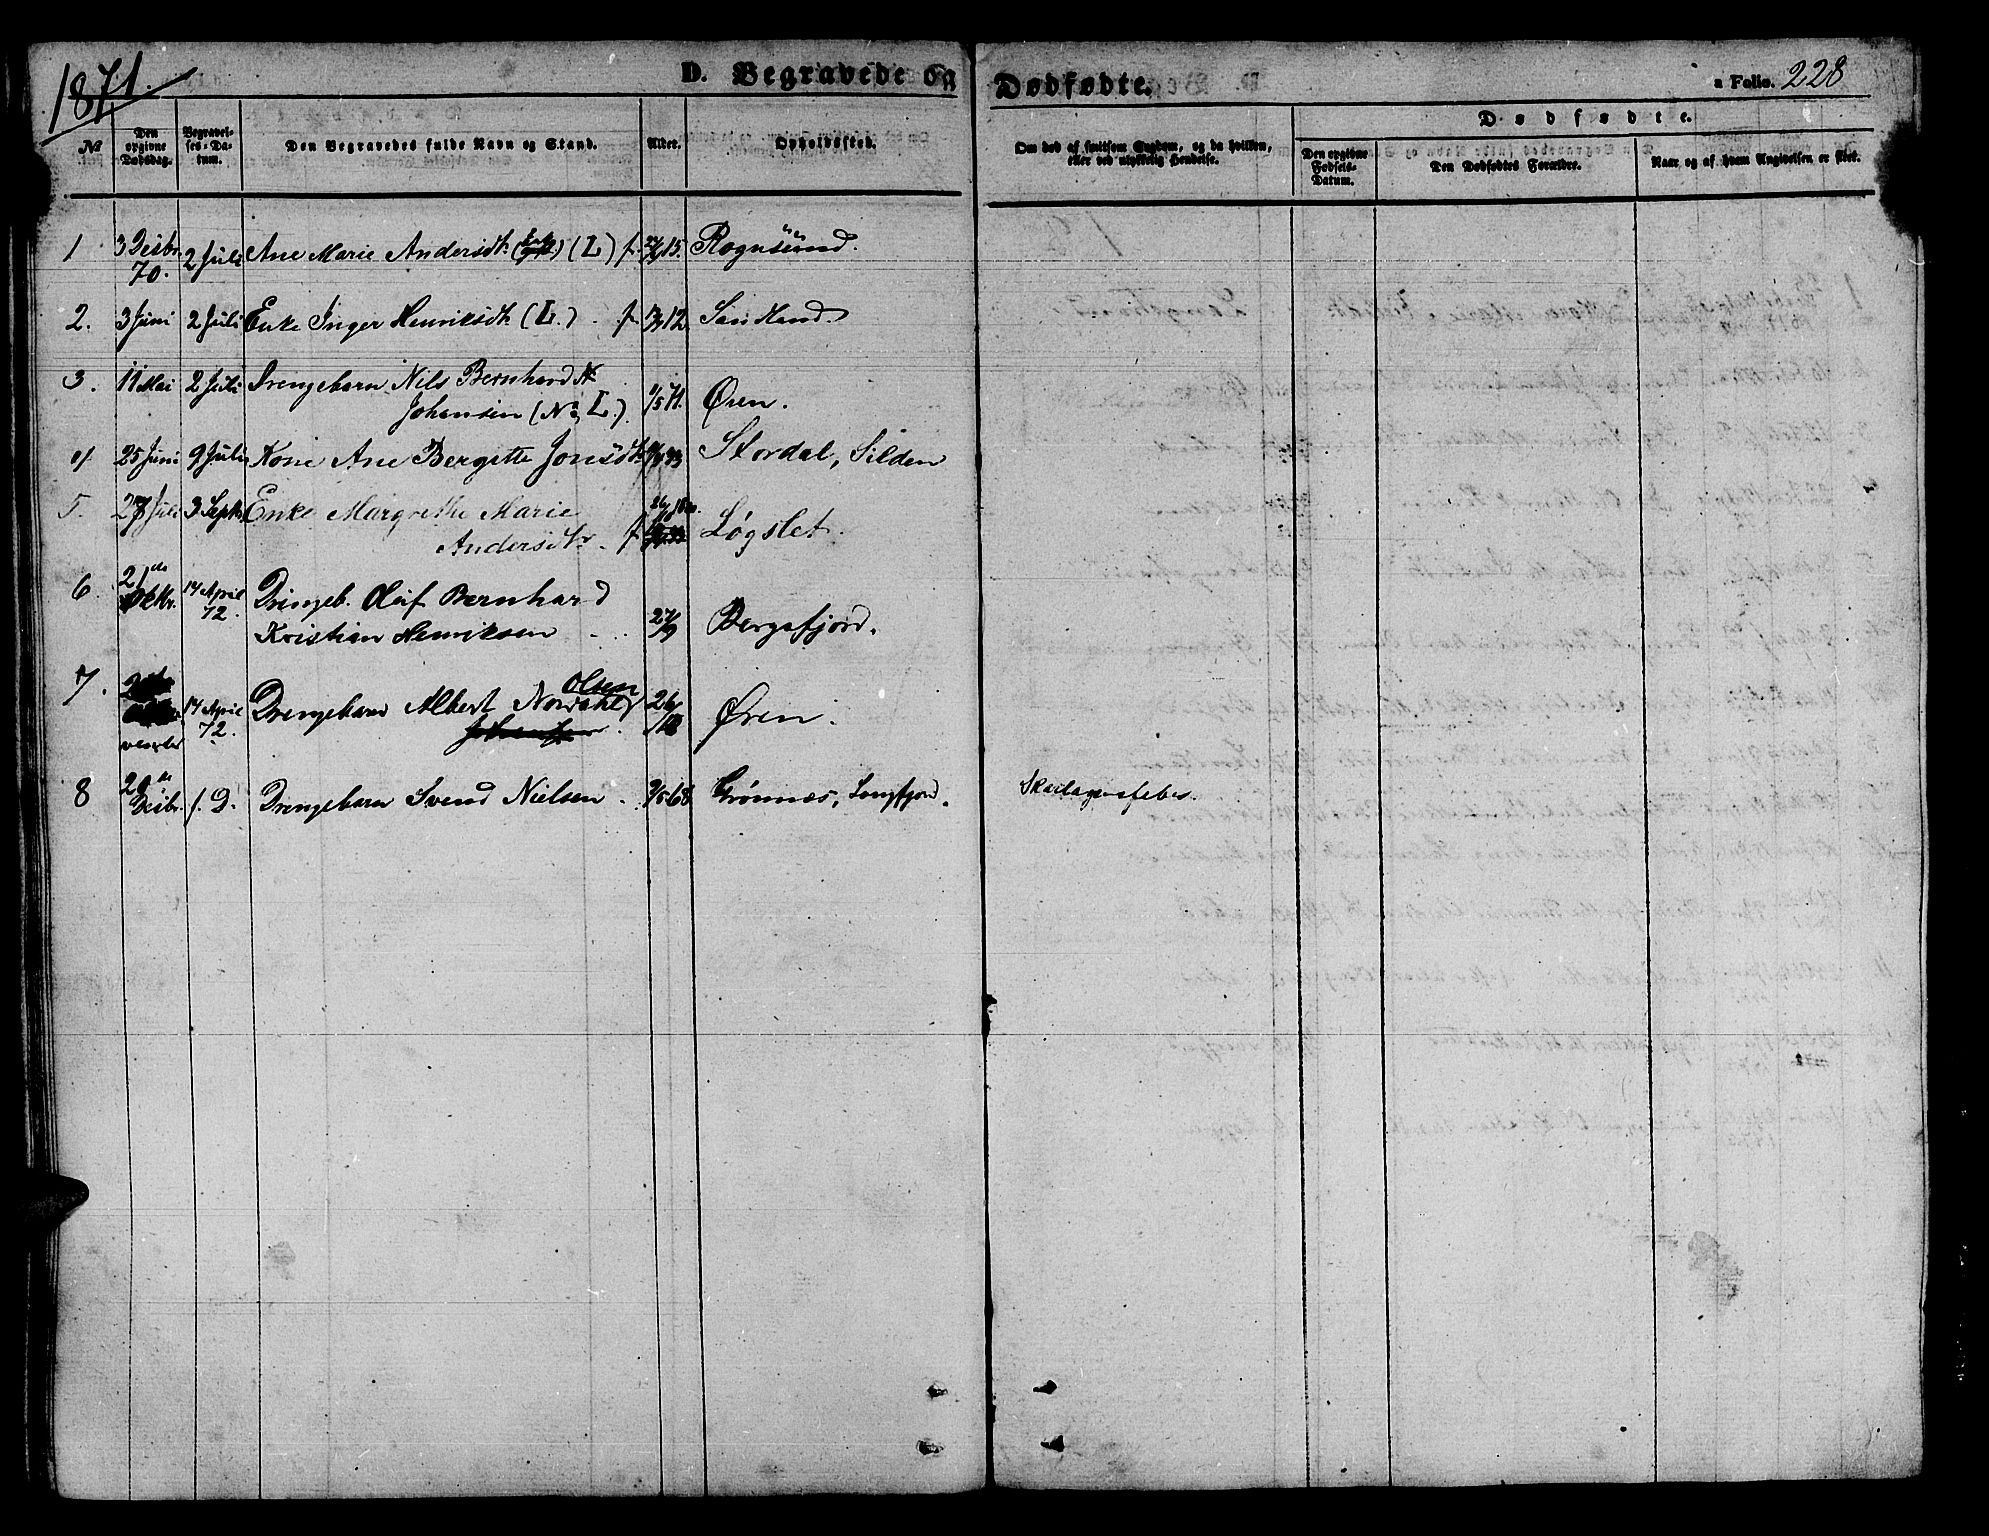 1871.
D. Begravede og Dødfødte.
a Folio. 228
Dødfødte.
No
Den opgivne Dødsdag.
Begravelses-Datum.
Den Begravedes fulde Navn og Stand.
Alder.
Opholdssted.
Om død af smitsom Sygdom, og da hvilken, eller ved ulykkelig Hendelse.
Den opgivne Fødsels-Datum.
Den Dødfødtes Forældre.
Naar og af hvem Angivelsen er skeet.
1 3 Desbr. 70. 2 Juli Ane Marie Andersdt. (L) f. 15. Rognsund.
2. 3 Juni 2 Juli Enke Inger Henriksdt. (L.) f. 12. Sandland.
3. 11 Mai 2 Juli Drengebarn Nils Bernhard
Johansen (N, L.) 1/5 71. Øren.
4 25 Juni 9 Juli Kone Ane Bergitte Jonsdt. 33 Stordal, Silden
5. 27 Juli 3 Septr Enke Margrethe Marie
Andersdtr. f. Løgslet.
6. 21de Oktbr. 14 April 72. Drengeb. Oluf Bernhard
Kristian Henriksen 27/9 Bergsfjord.
7. 14 April 72. Drengebarn Albert Nordahl Olsen 26/10 Øren.
8 20de Desbr. s. D. Drengebarn Svend Nielsen 9/5 68. Grønnæs, Langfjord. Skarlagensfeber.